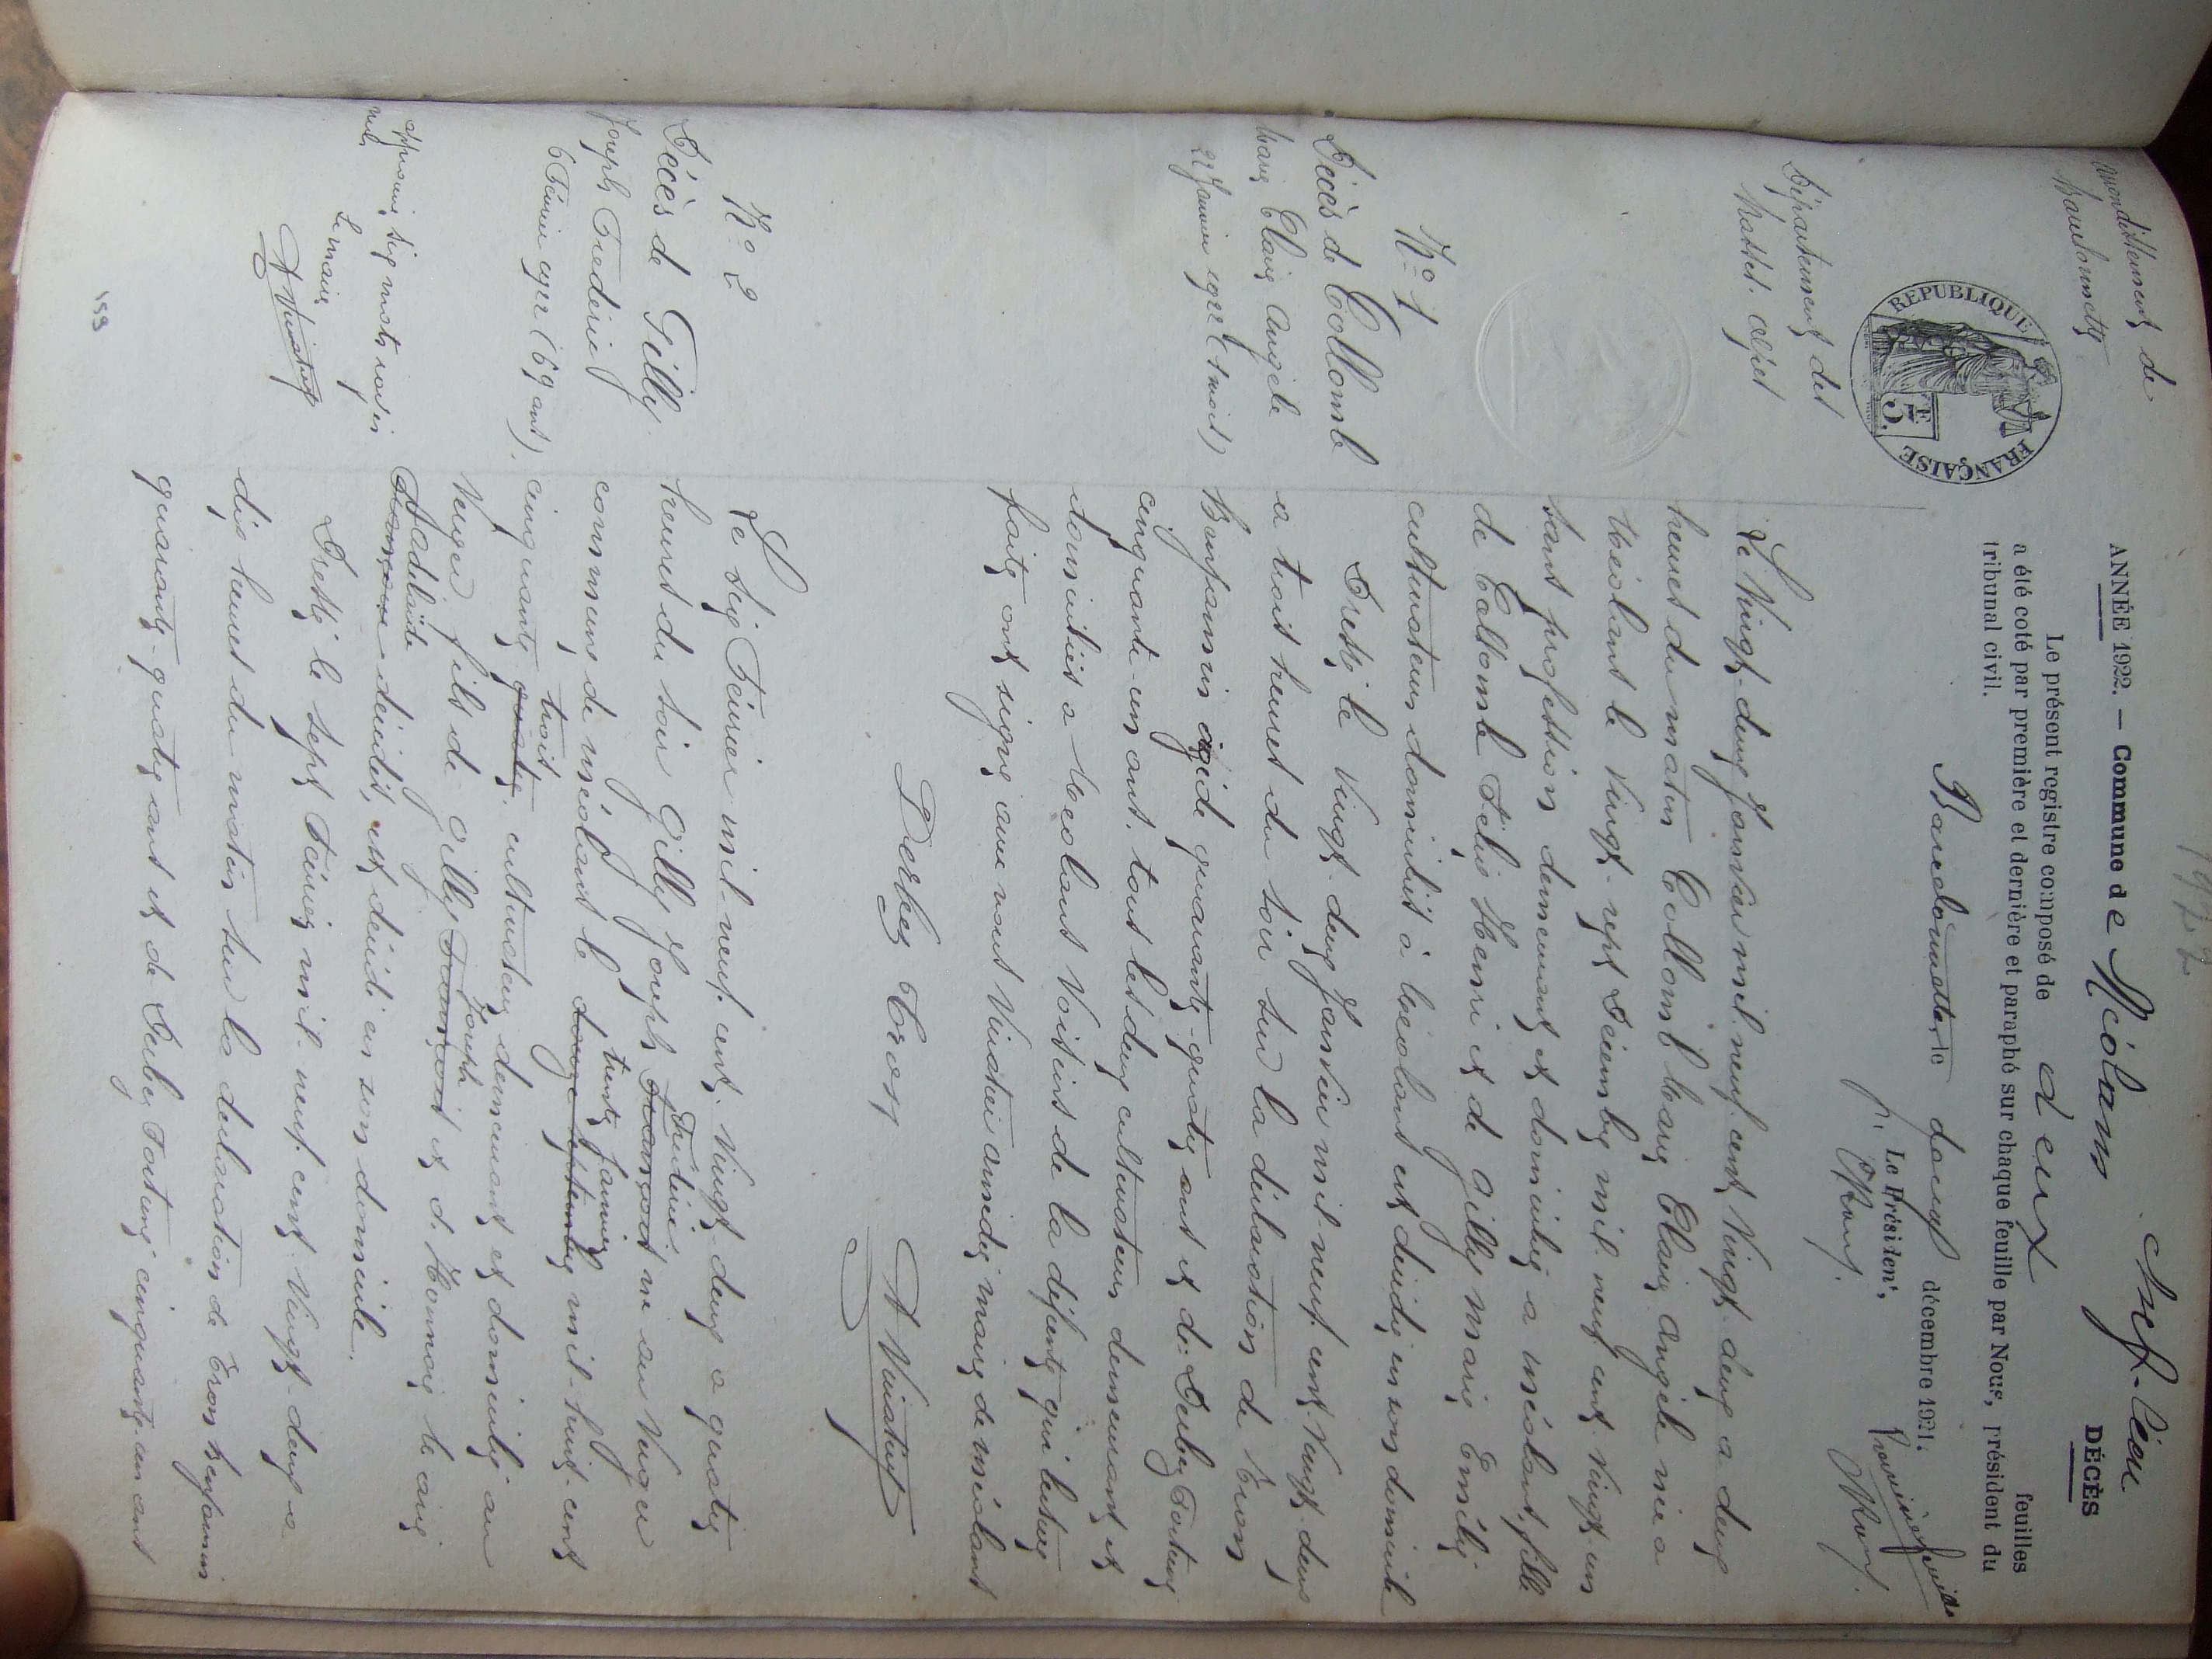 1922
Arrondissement de
Barcelonnette
ANNÉE 1922. — Commune de Méolans Chef-lieu DÉCÈS
Le présent registre composé de deux feuilles
a été coté par première et dernière et paraphé sur chaque feuille par Nous, président du
tribunal civil.
Barcelonnette, le douze décembre 1921.
Le Président,
REPUBLIQUE FRANÇAISE
3 F.
Département des
Basses-Alpes
N° 1
Décès de Collomb
Marie Claire Angèle
22 Janvier 1922 (1 mois)
Le Vingt-deux Janvier mil neuf cent Vingt-deux a deux
heures du matin Collomb Marie Claire Angèle née a
Méolans le Vingt-sept Décembre mil neuf cent vingt-un
sans profession demeurant et domiciliée a Méolans, fille
de Collomb Félix Henri et de Gilly Marie Emilie
cultivateurs domiciliés à Méolans est décédée en son domicile
Dressé le Vingt-deux Janvier mil neuf cent Vingt-deux
a trois heures du soir sur la déclaration de Tron
Benjamin agé de quarante-quatre ans et de Derbez Fortuné
cinquante-un ans, tous les deux cultivateurs demeurant et
domiciliés a Méolans Voisins de la défunte qui lecture
faite ont signé avec nous Vinatier Amédée maire de Méolans
Derbez Tron A Vinatier
N° 2
Décès de Gilly
Joseph Frédéric
6 Février 1922 (69 ans).
Le six Février mil neuf cent Vingt-deux a quatre
heures du soir Gilly Joseph François Frédéric né au Verger
commune de Méolans le douze septembre trente janvier mil-huit-cent
cinquante quatre trois cultivateur demeurant et domicilié au
Verger fils de Gilly François Joseph et d'Honnorat le
Françoise Adélaïde décédés, est décédé en son domicile.
Dressé le sept Février mil neuf cent Vingt-deux a
dix heures du matin sur la déclaration de Tron Benjamin
quarante-quatre ans et de Derbez Fortuné cinquante-un ans
approuvé six mots rayés
nuls
Le maire
A Vinatier
159